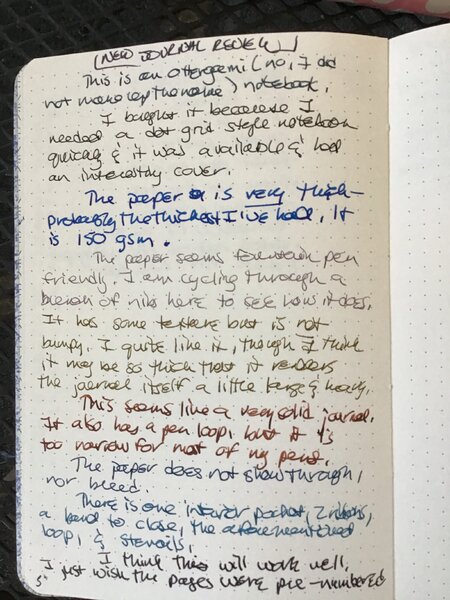 [NEW JOURNAL REVIEW]
This is an Ottergami (no, I did
not make up the name) notebook.
I bought it because I
needed a dot grid style notebook
quickly & it was available & had
an interesting cover.
The paper is very thick—
probably the thickest I've had. It
is 150 gsm.
The paper seems fountain pen
friendly. I am cycling through a
bunch of nibs here to see how it does.
It has some texture but is not
bumpy. I quite like it, though I think
it may be so thick that it renders
the journal itself a little large & heavy.
This seems like a very solid journal.
It also has a pen loop, but it is
too narrow for most of my pens.
The paper does not show through,
nor bleed.
There is one interior pocket, 2 ribbons,
a band to close, the aforementioned
loop, & stencils.
I think this will work well,
I just wish the pages were pre-numbered